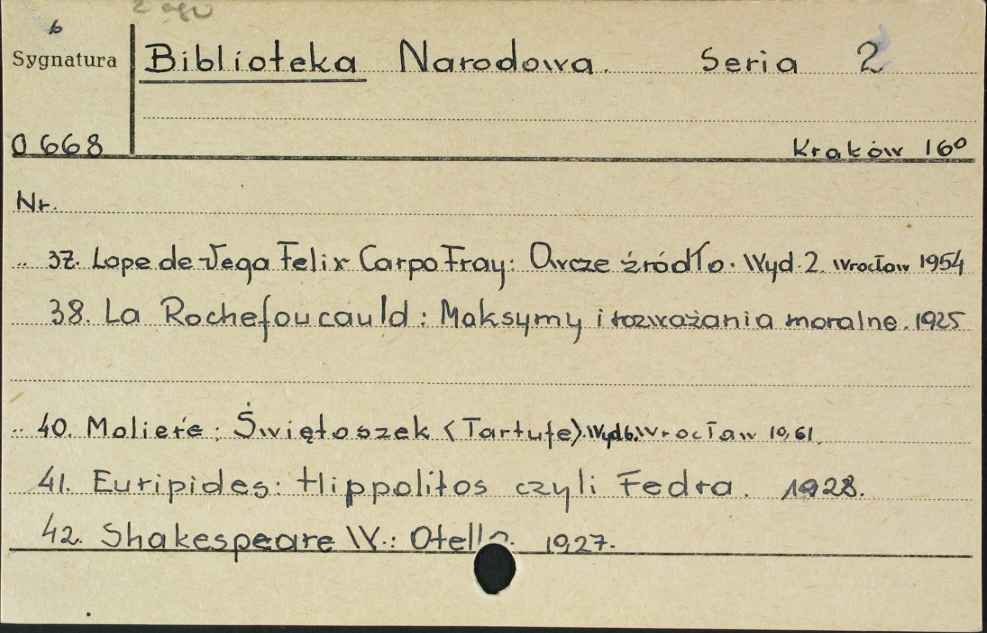 2 egz
b
Sygnatura
Biblioteka Narodowa. Seria 2
O 668
Kraków 16⁰
Nr.
.. 37. Lope de Vega Felix Carpo Fray: Owcze źródło. Wyd. 2. Wrocław 1954
38. La Rochefoucauld: Maksymy i rozważania moralne. 1925
.. 40. Moliere: Świętoszek (Tartufe). Wyd. 6. Wrocław 1961.
41. Euripides: Hippolitos czyli Fedra. 1928.
42. Shakespeare W.: Otello. 1927.